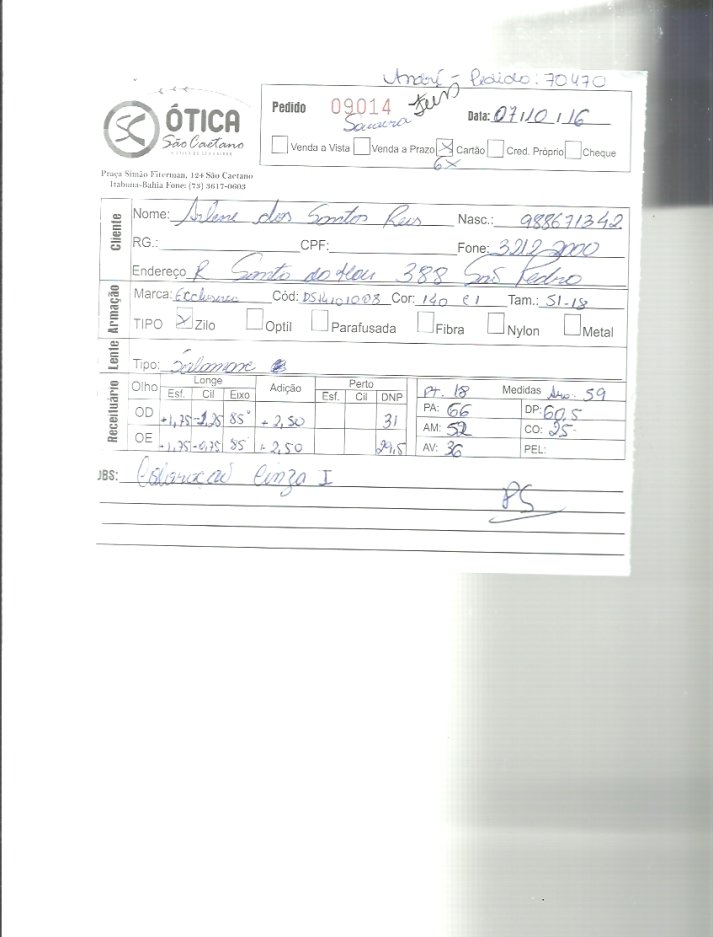 André - Pedido: 70470
ÓTICA
São Caetano
Praça Simão Fiterman, 124 São Caetano
Itabuna-Bahia Fone: (73) 3617-0603
Pedido 09014 Data: 07/10/16
Venda a Vista Venda a Prazo Cartão Cred. Próprio Cheque
6x
Cliente
Nome: Arlene dos Santos Reis Nasc.: 988671342
RG.: CPF: Fone: 3212 2000
Endereço R Santo 388 São Pedro
Armação
Marca: Cód: Cor: 140 C1 Tam.: 51-18
TIPO Zilo Optil Parafusada Fibra Nylon Metal
Lente
Tipo:
Receituário
Olho Longe Adição Perto Pt. 18 Medidas 59
Esf. Cil Eixo Esf. Cil DNP
OD +1,75 -2,25 85° + 2,50 31
OE +1,75 -0,75 85° + 2,50 29,5
PA: 66 DP: 60,5
AM: 52 CO: 25
AV: 36 PEL:
OBS: Coloração Cinza I
PS